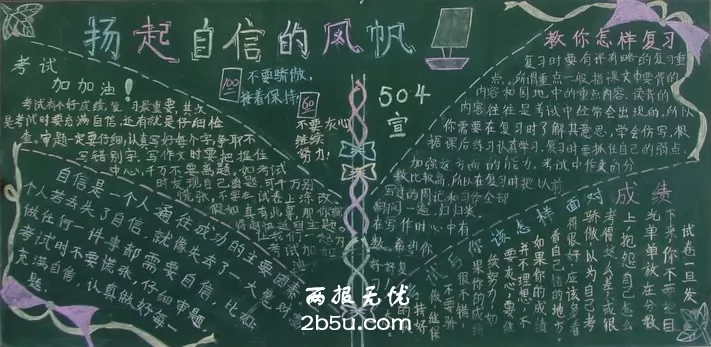 扬起自信的风帆
考试
加加油!
考试有个好成绩,复习最重要,其次
是考试时要充满自信,还有就是仔细检
查。审题一定要仔细,认真写好每个字,争取不
写错别字。写作文时要把握住
中心,千万不要离题,如考试
时发现自己离题,可千万别
慌张,不要在试卷上涂改
100
不要骄傲,
接着保持!
60
不要灰心
继续
努力!
504
宣
自信是一个人通往成功的主要因素
个人若丢失了自信,就像失去了一大笔财
做任何一件事都需要自信,比如:
考试时不要慌张,仔细审题
充满自信,认真做好每一
题。
教你怎样复习
复习时要有详有略的复习重
点,所谓重点一般指课文中要背的
内容和园地中的重点内容。读背的
内容往往是考试中经常会出现的,所以
你需要在复习时了解其意思,学会仿写,根
据课后练习认真学习。复习时要抓住自己的弱点,
加强这方面的能力。考试中作文的分
数比较高,所以在复习时把以前
写过的周记和习作全部
翻阅一遍,归归类,
在写作时心中有
数。希望你
好好复
考试与你该怎样面对成绩
试卷一旦发
下来,你不要把目
光单单放在分数
上,抱怨自己怎么
考得这么差,或很
骄傲以为自己考
得很好,应该多看
看自己错的地方。
如果你的成绩
并不理想,不
要灰心,要继
续努力;如
果你的成绩
很不错,
不要骄
傲,继续
保
持好
的
两报无忧
2b5u.com